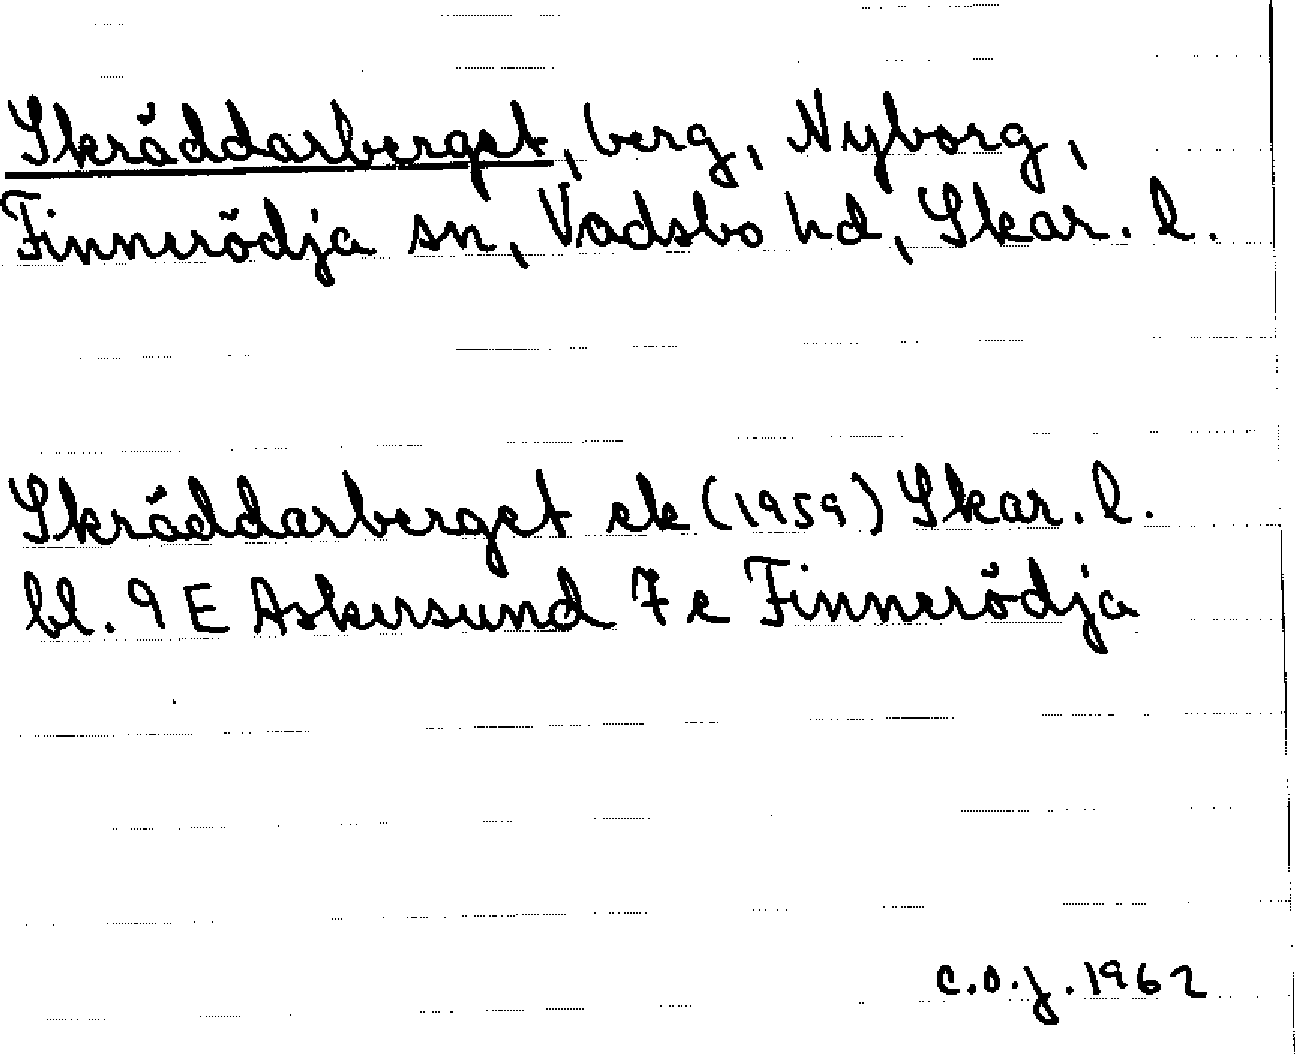 Skräddarberget, berg, Nyborg,
Finnerödja sn, Vadsbo hd, Skar. l.
Skräddarberget ek (1959) Skar. l.
bl. 9 E Askersund 7 e Finnerödja
C.O.J. 1962